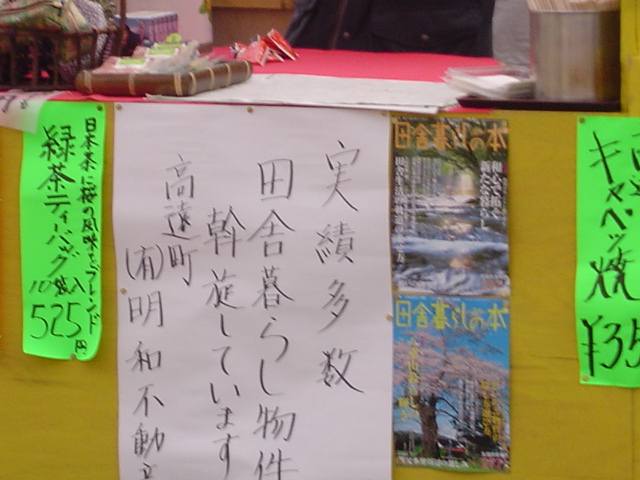 日本茶に桜の風味をブレンド
緑茶ティーバッグ
10袋入
525円
実績多数
田舎暮らし物件
斡旋しています
高遠町
(有)明和不動
田舎暮らしの本
田舎暮らしの本
キャベツ焼
¥35